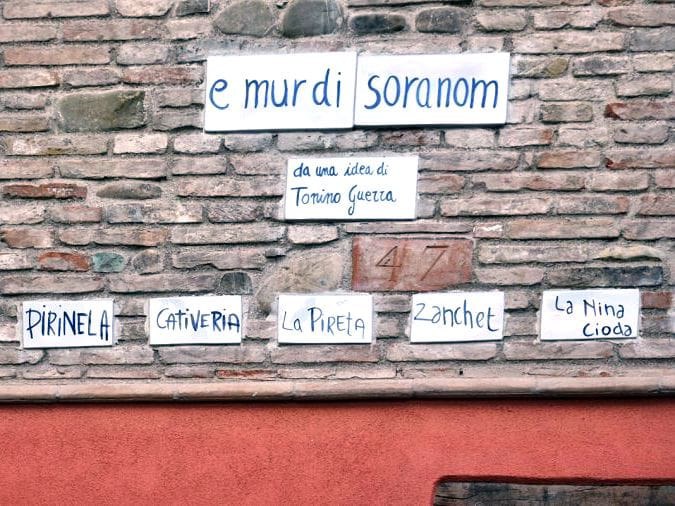 e mur di soranom
da una idea di
Tonino Guerra
47
PIRINELA
CATIVERIA
LA PIRETA
Zanchet
La Nina
Cioda